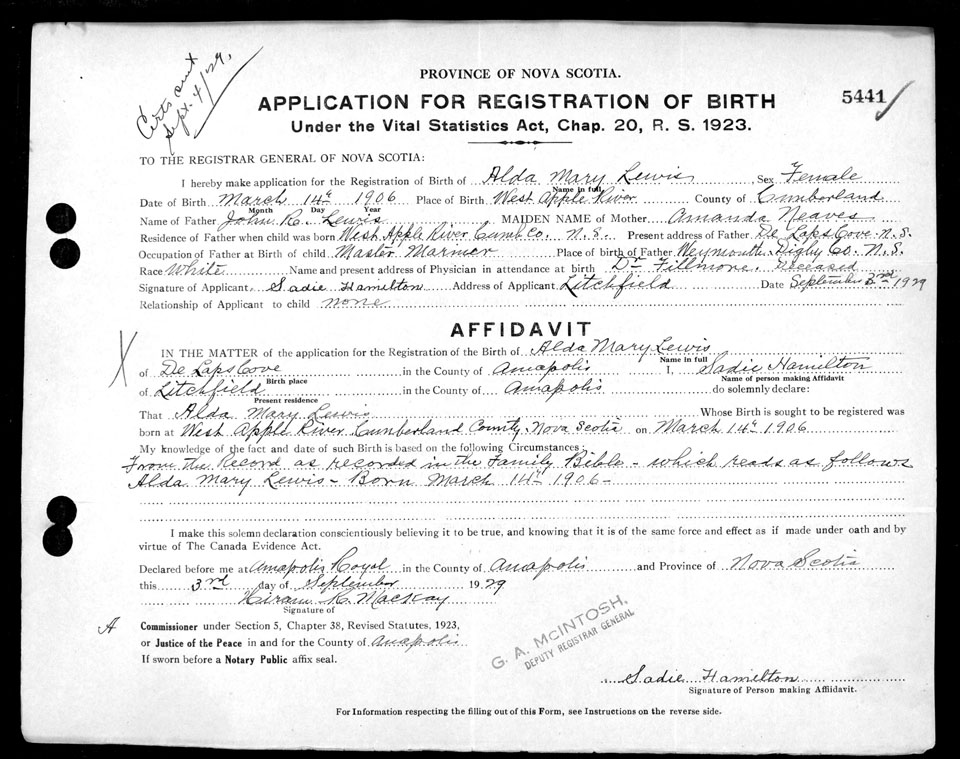 Certs sent
Sept. 4/29.
PROVINCE OF NOVA SCOTIA.
APPLICATION FOR REGISTRATION OF BIRTH
5441
Under the Vital Statistics Act, Chap. 20, R. S. 1923.
TO THE REGISTRAR GENERAL OF NOVA SCOTIA:
I hereby make application for the Registration of Birth of Alda Mary Lewis Sex Female
Name in full
Date of Birth March 14th 1906 Place of Birth West Apple River County of Cumberland
Month Day Year
Name of Father John R. Lewis MAIDEN NAME of Mother Amanda Neaves
Residence of Father when child was born West Apple River Cumb. Co. N. S. Present address of Father De Laps Cove N. S.
Occupation of Father at Birth of child Master Mariner Place of birth of Father Weymouth Digby Co. N. S.
Race White Name and present address of Physician in attendance at birth Dr Fillmore. Deceased
Signature of Applicant Sadie Hamilton Address of Applicant Litchfield Date September 3rd 1929
Relationship of Applicant to child none
AFFIDAVIT
X
IN THE MATTER of the application for the Registration of the Birth of Alda Mary Lewis
Name in full
of De Laps Cove in the County of Annapolis I, Sadie Hamilton
Birth place Name of person making Affidavit
of Litchfield in the County of Annapolis do solemnly declare:
Present residence
That Alda Mary Lewis Whose Birth is sought to be registered was
born at West Apple River Cumberland County. Nova Scotia on March 14th 1906
My knowledge of the fact and date of such Birth is based on the following Circumstances:
From the Record as recorded in the Family Bible - which reads as follows
Alda Mary Lewis - Born March 14th 1906 -
I make this solemn declaration conscientiously believing it to be true, and knowing that it is of the same force and effect as if made under oath and by
virtue of The Canada Evidence Act.
Declared before me at Annapolis Royal in the County of Annapolis and Province of Nova Scotia
this 3rd day of September 1929
Hiram K. MacKay
Signature of
A Commissioner under Section 5, Chapter 38, Revised Statutes, 1923,
or Justice of the Peace in and for the County of Annapolis
If sworn before a Notary Public affix seal.
G. A. McINTOSH,
DEPUTY REGISTRAR GENERAL
Sadie Hamilton
Signature of Person making Affidavit.
For Information respecting the filling out of this Form, see Instructions on the reverse side.